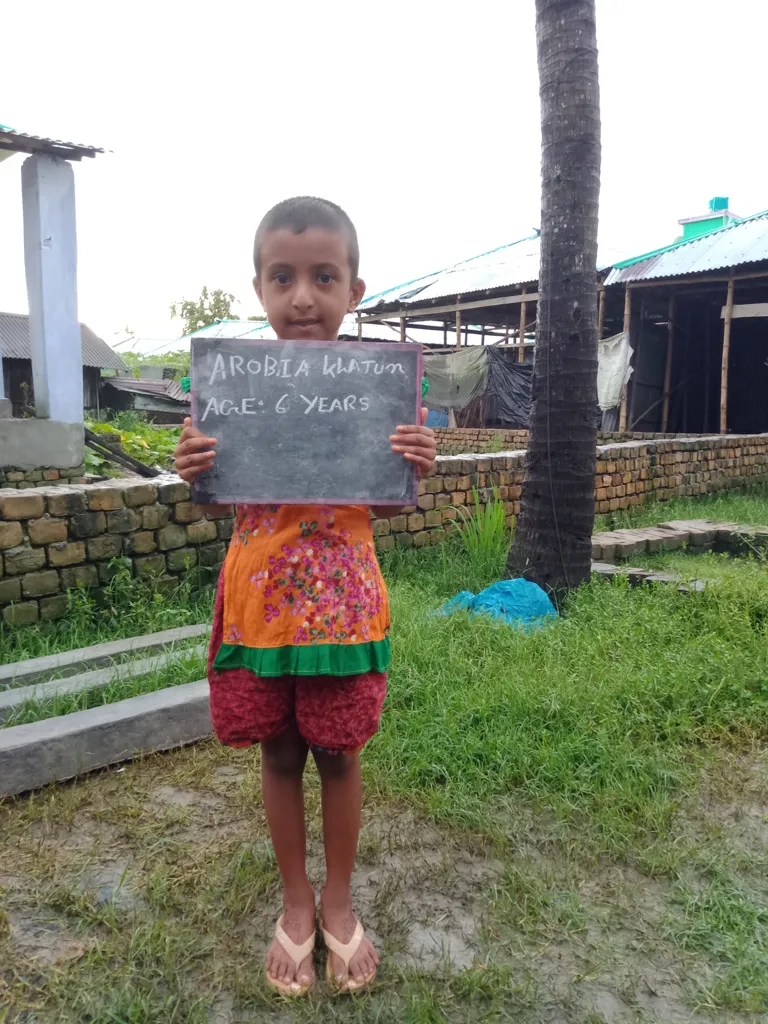 AROBIA KHATUN
AGE: 6 YEARS